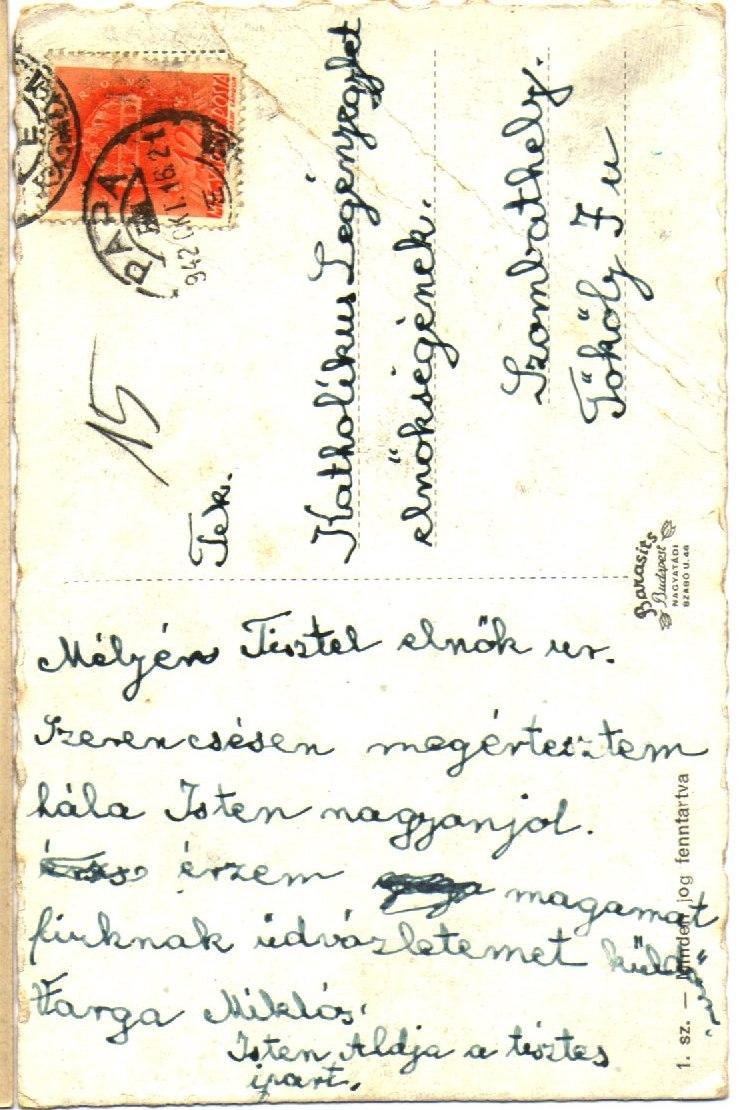 PÁPA
942 OKT. 16. 21
15
Tek.
Katholikus Legényegylet
elnökségének.
Szombathely.
Tököly I u
Barasits
Budapest
NAGYATÁDI
SZABÓ U. 46
Mélyén Tisztel elnök ur.
Szerencsésen megérteztem
hála Isten nagyanjol.
érzem magamat
fiuknak üdvözletemet küldö
Varga Miklós.
Isten Áldja a tisztes
ipart.
1. sz. — Minden jog fenntartva